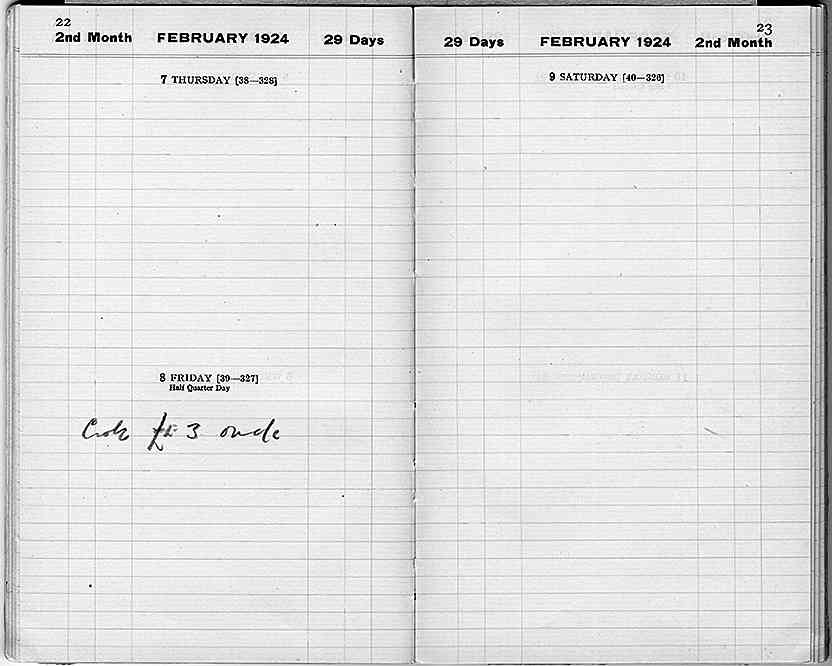 22
2nd Month FEBRUARY 1924 29 Days
7 THURSDAY [38—328]
8 FRIDAY [39—327]
Half Quarter Day
3
23
29 Days FEBRUARY 1924 2nd Month
9 SATURDAY [40—326]